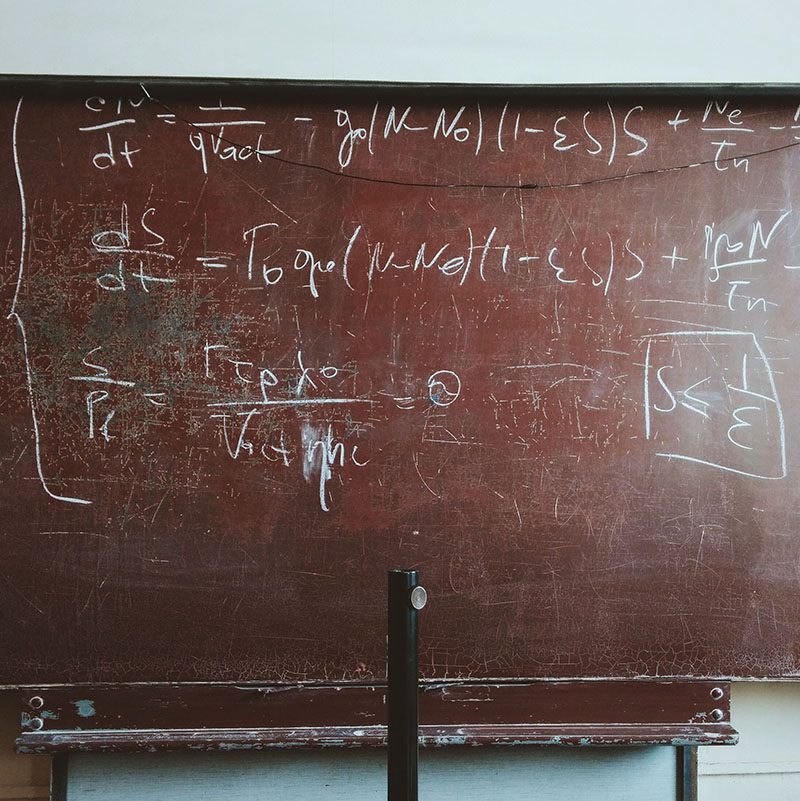 dN/dt = I/qVact - g0(N-N0)(1-εS)S + Ne/τn -
dS/dt = Γ0 g0(N-N0)(1-εS)S + N/τn -
S/Pf = Γτpλ0/Vact ηhc = ϑ
S ≤ 1/ε